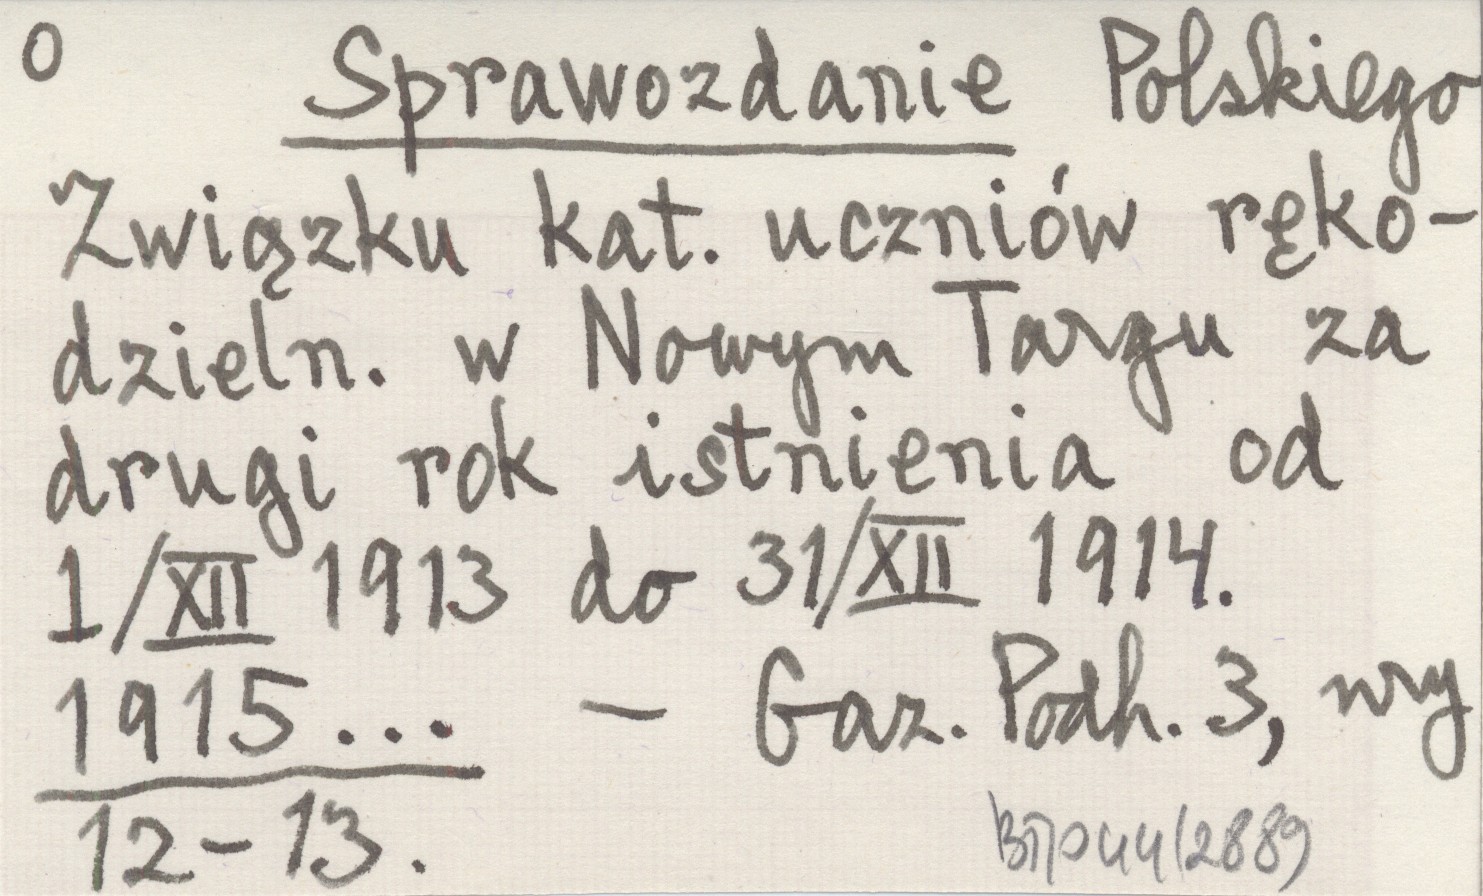 0 Sprawozdanie Polskiego
Związku kat. uczniów ręko-
dzieln. w Nowym Targu za
drugi rok istnienia od
1/XII 1913 do 31/XII 1914.
1915... — Gaz. Podh. 3, nry
12-13.